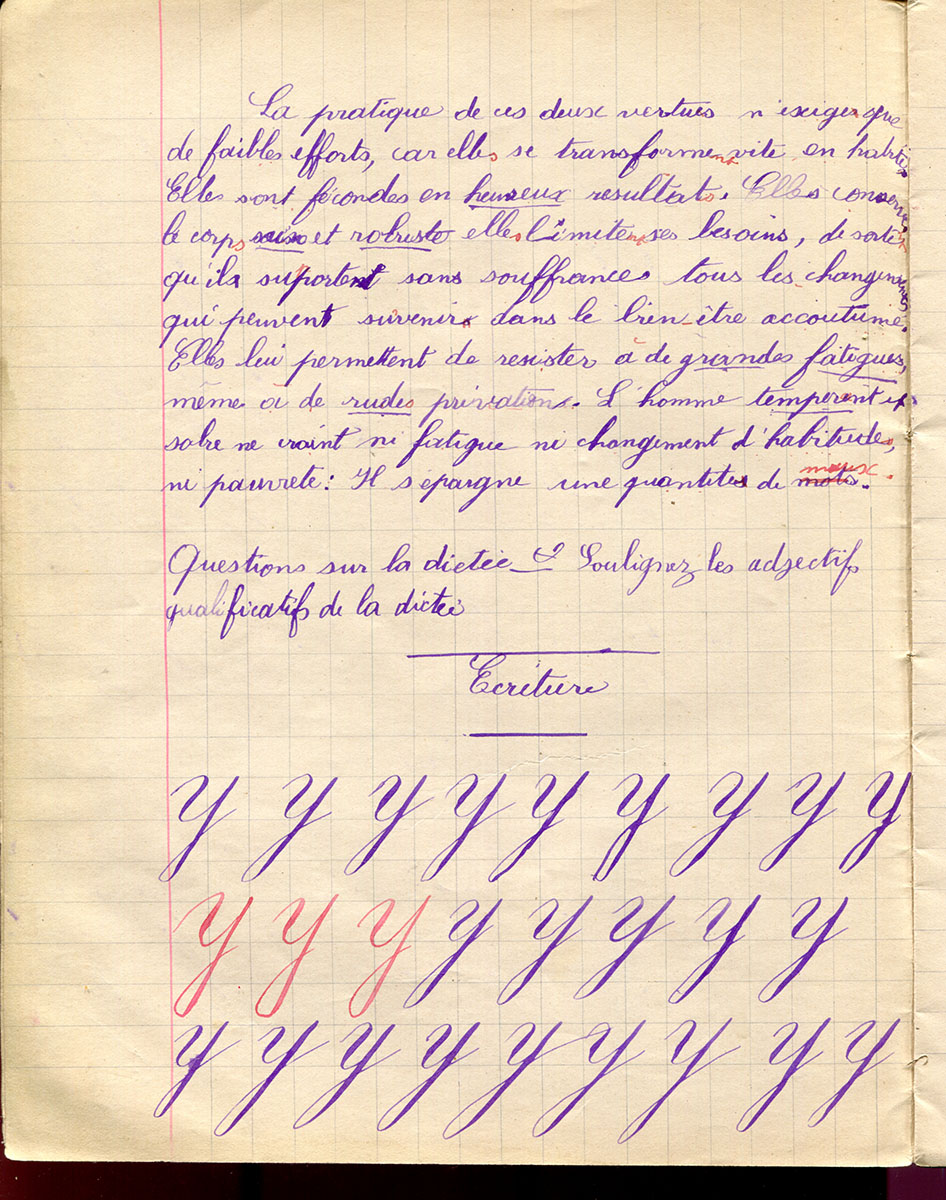 La pratique de ces deux vertues n'exiger que
de faibles efforts, car elles se transforment vite en habitudes
Elles sont fécondes en heureux resultats. Elles conservent
le corps sain et robuste elles limitent ses besoins, de sorte
qu'ils suportent sans souffrances tous les changements
qui peuvent suvenir dans le bien-être accoutumé.
Elles lui permettent de resister à de grandes fatigues,
même à de rudes privations. L'homme temperent et
sobre ne craint ni fatigue ni changement d'habitude,
ni pauvreté: Il s'epargne une quantités de mots. maux.
Questions sur la dictée Soulignez les adjectifs
qualificatifs de la dictée
Ecriture
Y Y Y Y Y Y Y Y Y
Y Y Y Y Y Y Y Y
Y Y Y Y Y Y Y Y Y